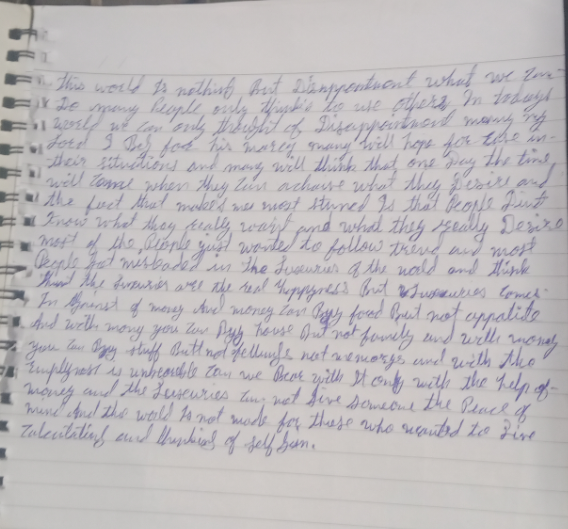 This world Is nothing But Disappointment what we can
Do many People only think's to use others In todays
world we can only thought of Disappointment many my
Lord I Beg for his marcy many will hope for time in
their situations and many will think that one day the time
will come when they can achaive what they Desire and
the fact that makes me most stuned Is that People Don't
Know what they really want and what they really Desire
most of the People just wanted to follow trend and most
People Got misleaded in the Luxurius of the world and think
that the luxuries are the real Happyness But Luxuries comes
In Against of money And money can Buy food But not appatite
And with mony you can Buy house But not family and with money
you can Buy stuff Butt not fellings not memorys and with the
Emptyness is unbearable can we Bear with It only with the help of
money and the Luxeuries can not Give Someone the Peace of
mind And this world Is not made for those who wanted to Live
Calculating and thinking of self